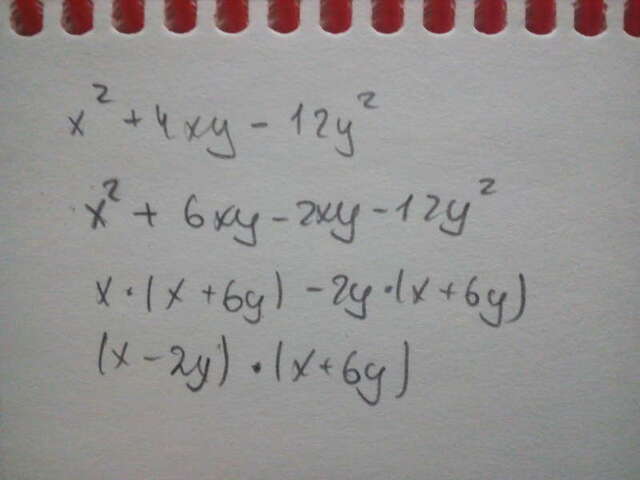 x² + 4xy - 12y²
x² + 6xy - 2xy - 12y²
x·(x + 6y) - 2y·(x + 6y)
(x - 2y)·(x + 6y)